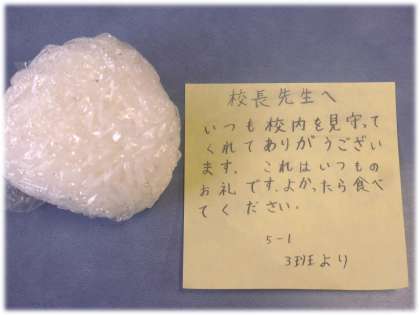 校長先生へ
いつも校内を見守って
くれてありがうござい
ます。これはいつもの
お礼です。よかったら食べ
てください。
5-1
3班より